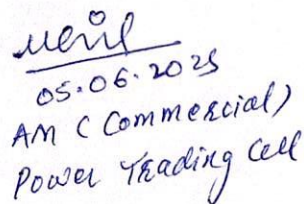 05.06.2025
AM (Commercial)
Power Trading Cell